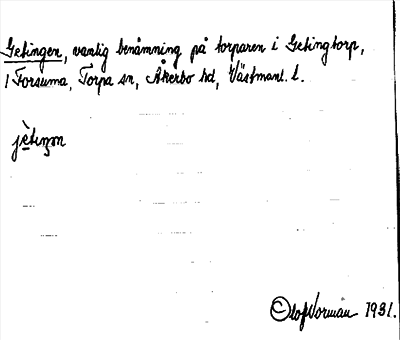 Getingen, vanlig benämning på torparen i Getingtorp,
/ Forsuma, Torpa sn, Åkerbo hd, Västmanl. l.
jètiŋən
Olof Norman 1931.